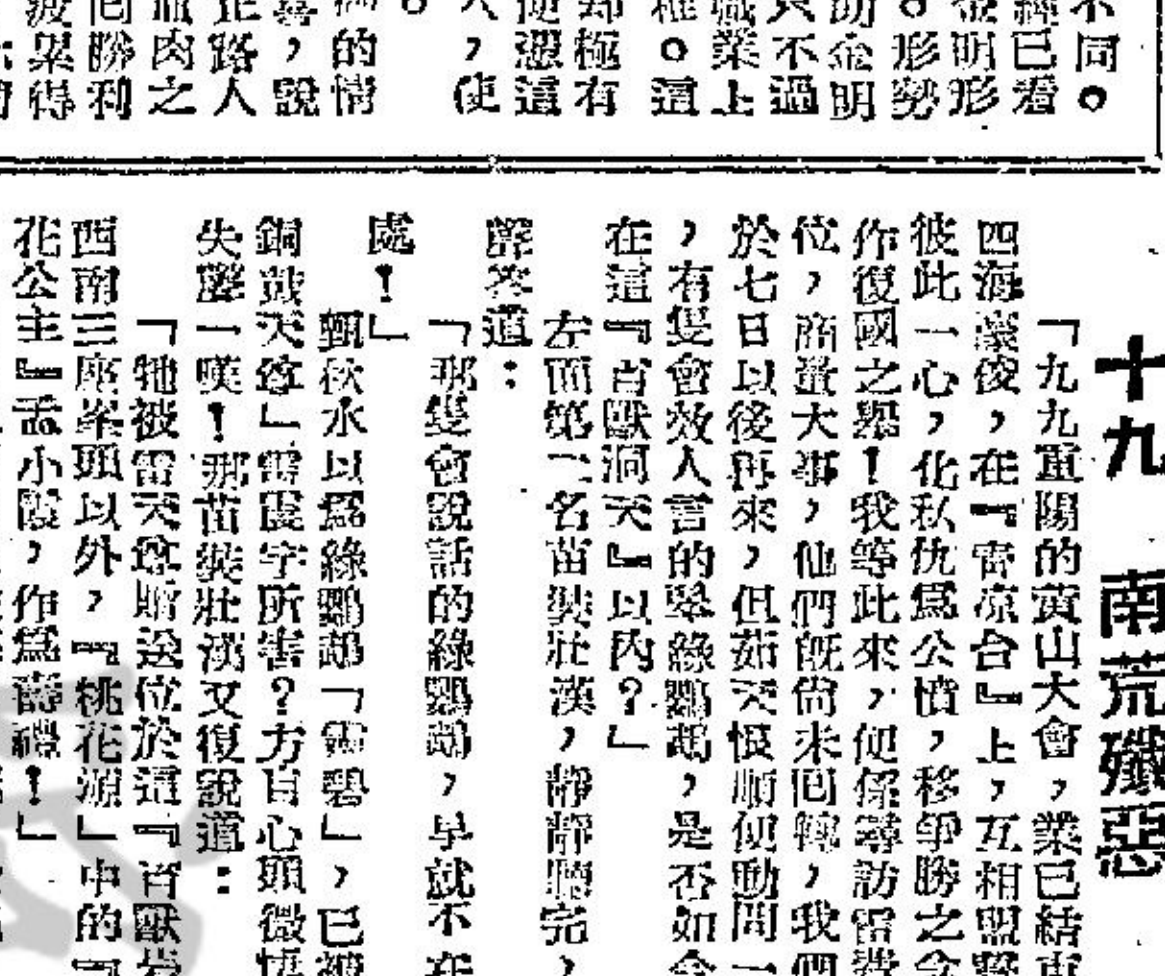 不同。
經已着
金明形
。形勢
助金明
只不過
職業上
種。這
却極有
便憑這
人,使
。
的情
,說
正路人
血肉之
回勝利
累得
十九 南荒殲惡
「九九重陽的黃山大會,業已結束
四海豪俊,在『寄凉台』上,互相盟誓
彼此一心,化私仇爲公憤,移爭勝之念
作復國之舉!我等此來,便係尋訪雷
位,商量大事,他們旣尙未回轉,我們
於七日以後再來,但茹天恨順便動問一
,有隻會效人言的翠綠鸚鵡,是否如今
在這『百獸洞天』以內?」
左面第二名苗裝壯漢,靜靜聽完,
辭答道:
「那隻會說話的綠鸚鵡,早就不在
處!」
甄秋水以爲綠鸚鵡「靈碧」,已被
銅鼓天尊」雷震宇所害?方自心頭微
失聲一嘆!那苗裝壯漢又復說道:
「牠被雷天尊贈送位於這『百獸岩
西南三座峯頭以外,『桃花源」中的『
花公主』孟小霞,作爲壽禮!」